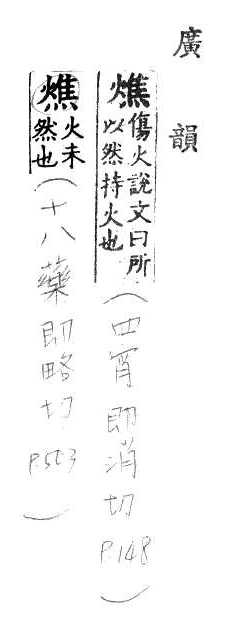 廣韻
燋傷火說文曰所
以然持火也
(四宵 即消切 P.148)
燋火未
然也
(十八藥 即略切 P.503)